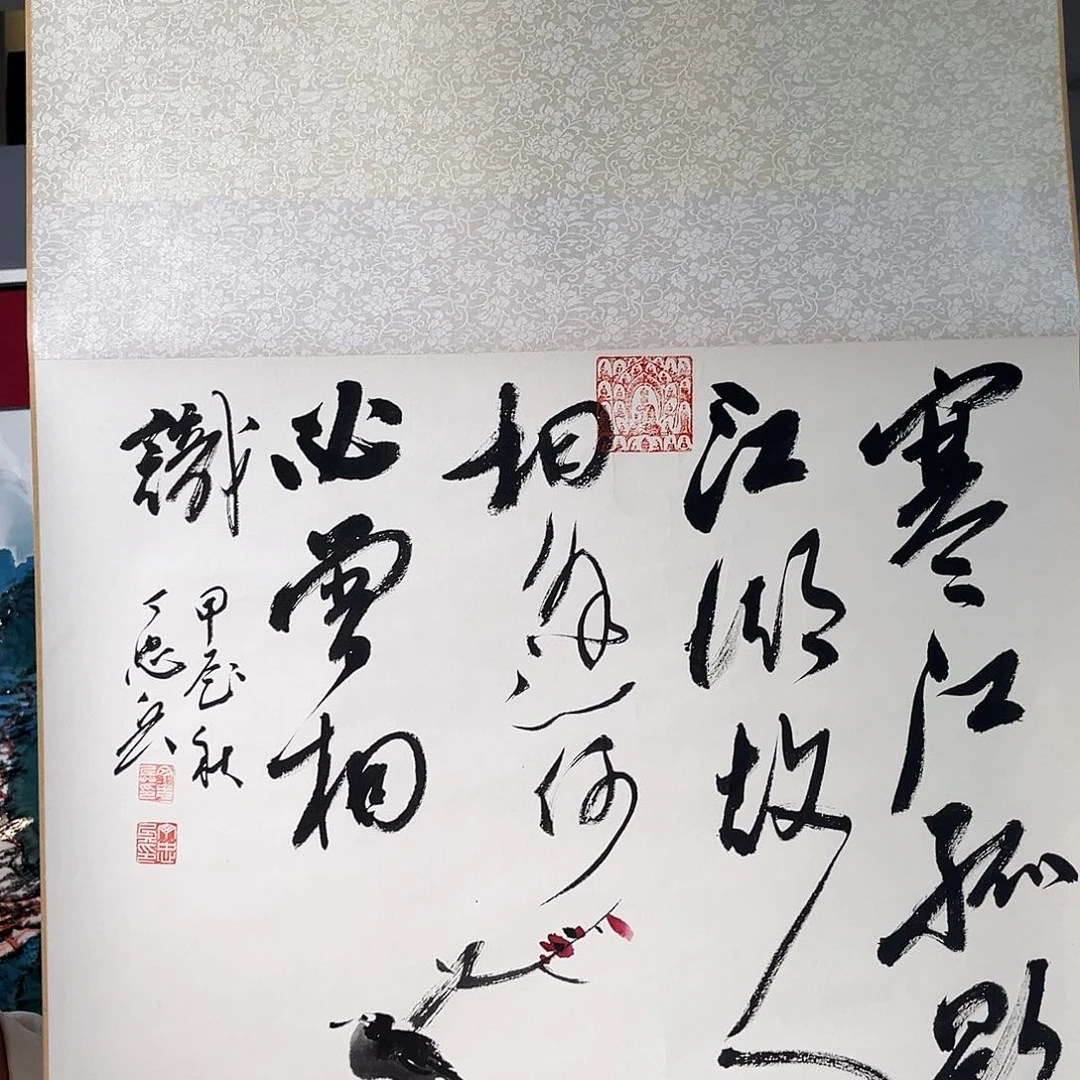 寒江孤影
江湖故人
相逢何
必曾相
識
甲辰秋
丁忠兵